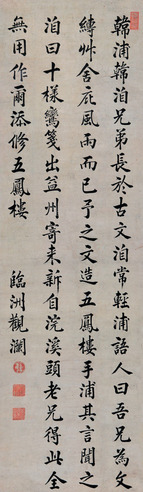 韓浦韓洎兄弟長於古文洎常輕浦語人曰吾兄為文
縛艸舍庇風雨而已予之文造五鳳樓手浦其言聞之
洎曰十樣鸞箋出益州寄來新自浣溪頭老兄得此全
無用作爾添修五鳳樓
臨洲觀瀾